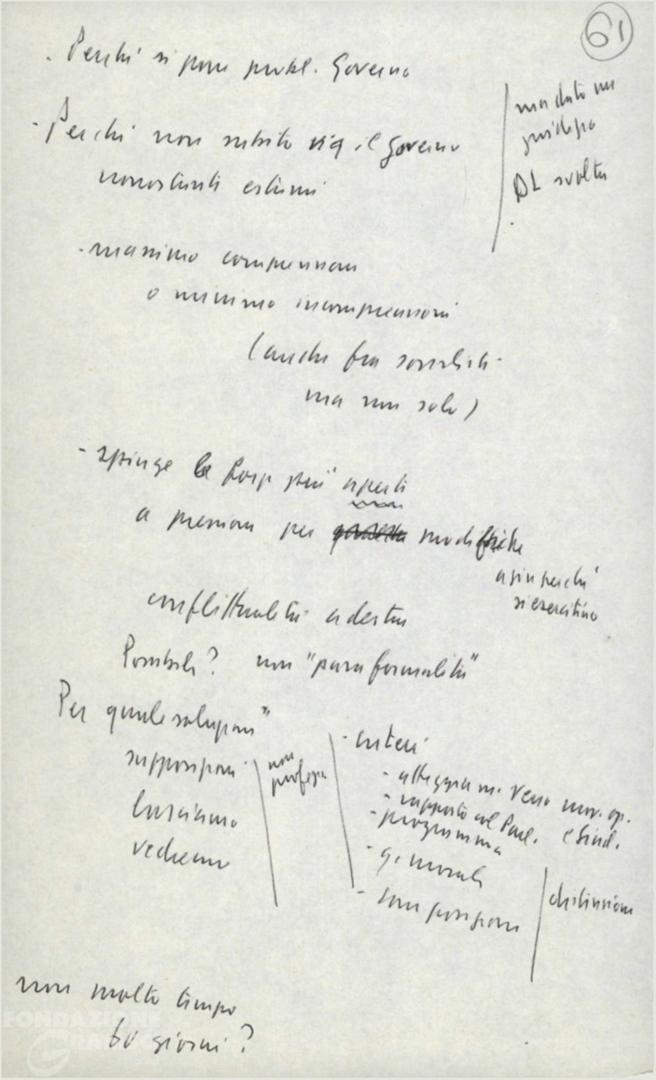 61
. Perché si pone probl. Governo
- Perché non subito il governo
nonostanti
mandato
DC svolta
- massimo comprensioni
o minimo incomprensioni
(anche fra socialisti
ma non solo)
- spinge le forze più aperti
a pressioni per modifiche
si esercitino
conflittualità a destra
Possibile? non "pura formalità"
Per quale soluzioni"
supposizioni
lasciamo
vedremo
non
- criteri
- atteggiam. verso mov. op.
e Sind.
- rapporto col Parl.
- programma
- generali
- composizioni
distinzioni
non molto tempo
60 giorni?
FONDAZIONE
GRAMSCI